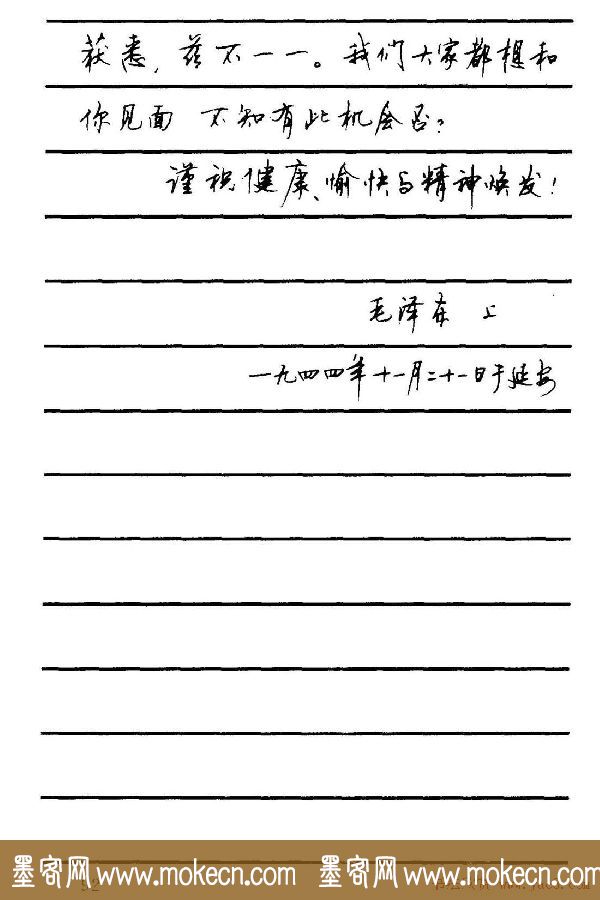 获悉，兹不一一。我们大家都想和
你见面 不知有此机会否？
谨祝健康、愉快与精神焕发！
毛泽东 上
一九四四年十一月二十一日于延安
墨客网 www.mokecn.com 墨客网 www.mokecn.com
52